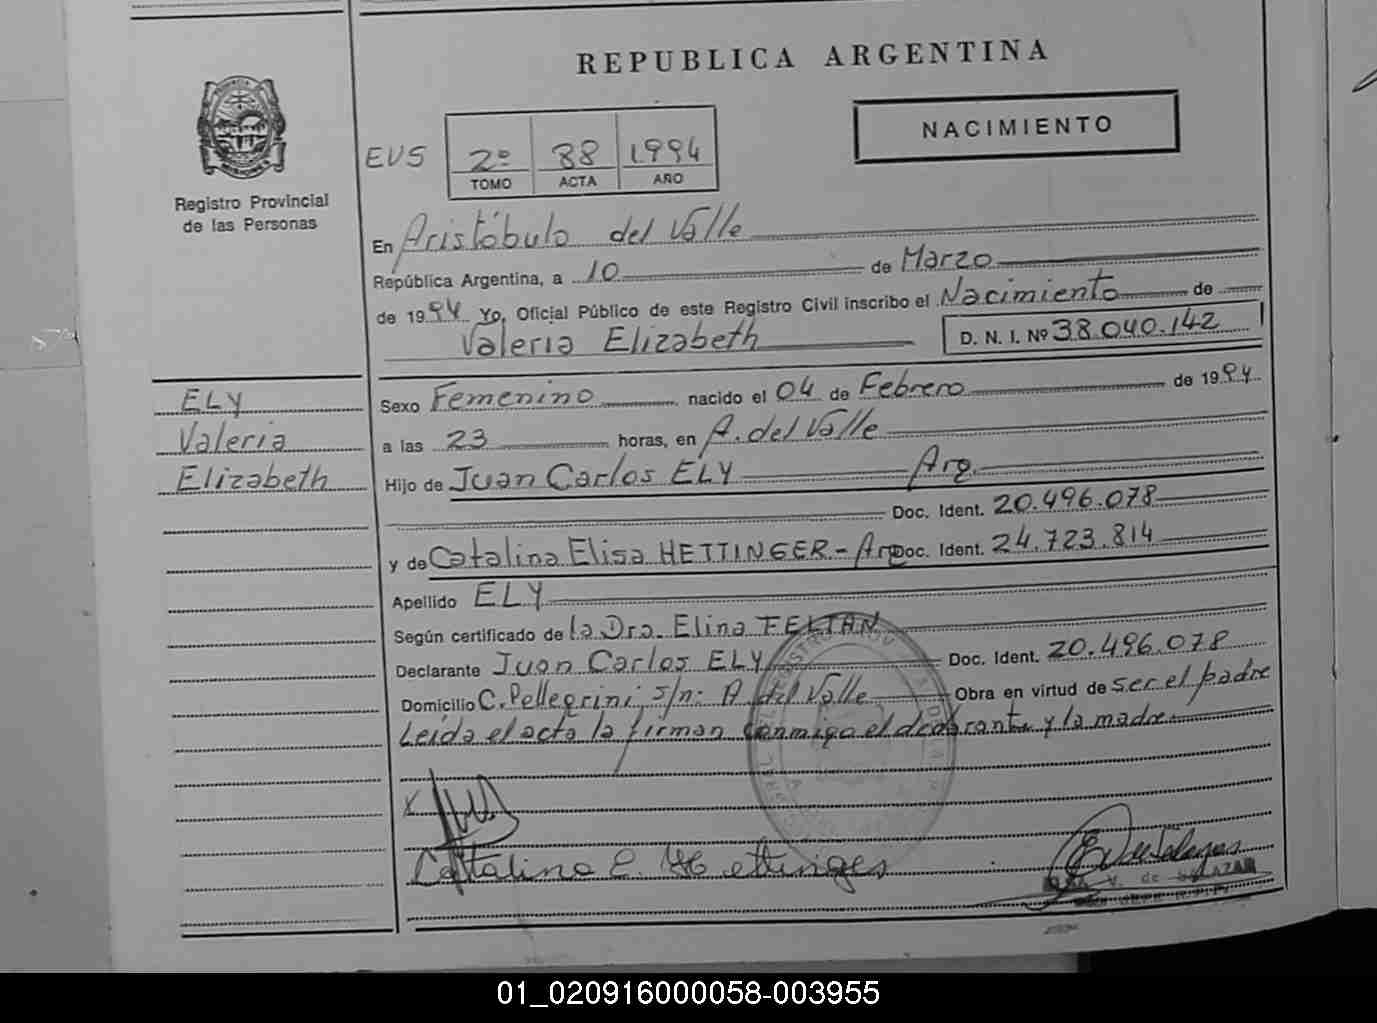 REPUBLICA ARGENTINA
NACIMIENTO
Registro Provincial
de las Personas
EVS 2º 88 1.994
TOMO ACTA AÑO
En Aristóbulo del Valle
República Argentina, a 10 de Marzo
de 1994 Yo, Oficial Público de este Registro Civil inscribo el Nacimiento de
Valeria Elizabeth D. N. I. Nº 38.040.142
ELY
Valeria
Elizabeth
Sexo Femenino nacido el 04 de Febrero de 1994
a las 23 horas, en A. del Valle
Hijo de Juan Carlos ELY Arg.
Doc. Ident. 20.496.078
y de Catalina Elisa HETTINGER - Arg Doc. Ident. 24.723.814
Apellido ELY
Según certificado de la Dra. Elina FELTAN
Declarante Juan Carlos ELY Doc. Ident. 20.496.078
Domicilio C. Pellegrini s/n: A. del Valle Obra en virtud de ser el padre
Leída el acta la firman conmigo el declarante y la madre.
Catalina E. Hettinger
V. de
01_020916000058-003955